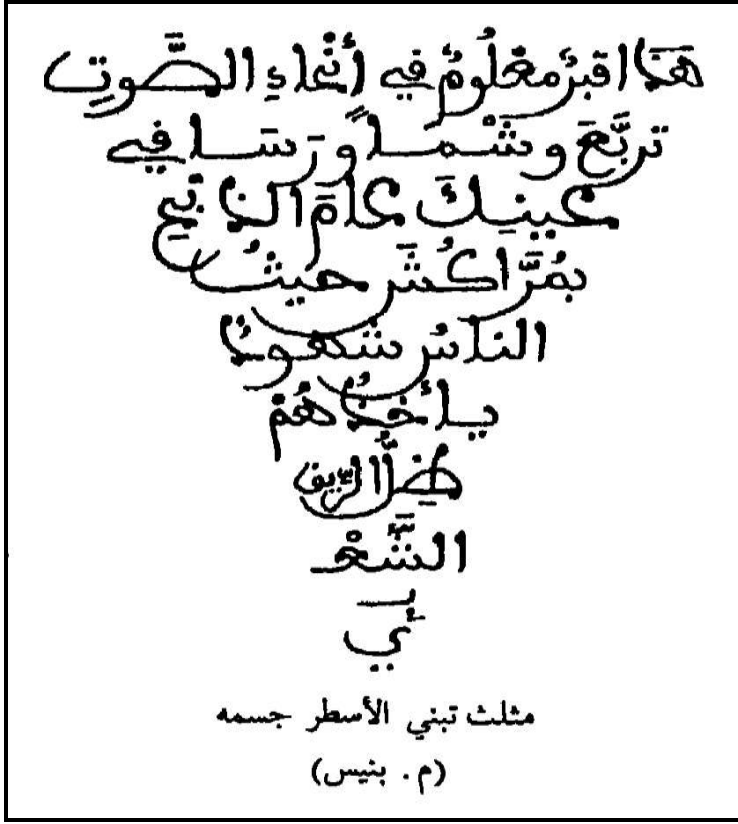 هَذَا قبرٌ معْلُومٌ في أنْحاءِ الصَّوتِ
تربَّعَ وشْماً ورَسَا في
عينِكَ عامَ
بمُرَّاكُشَ حيثُ
الناسُ
يأخذُهُمْ
الرّيف
الشَّعْـ
مثلث تبني الأسطر جسمه
(م . بنيس)